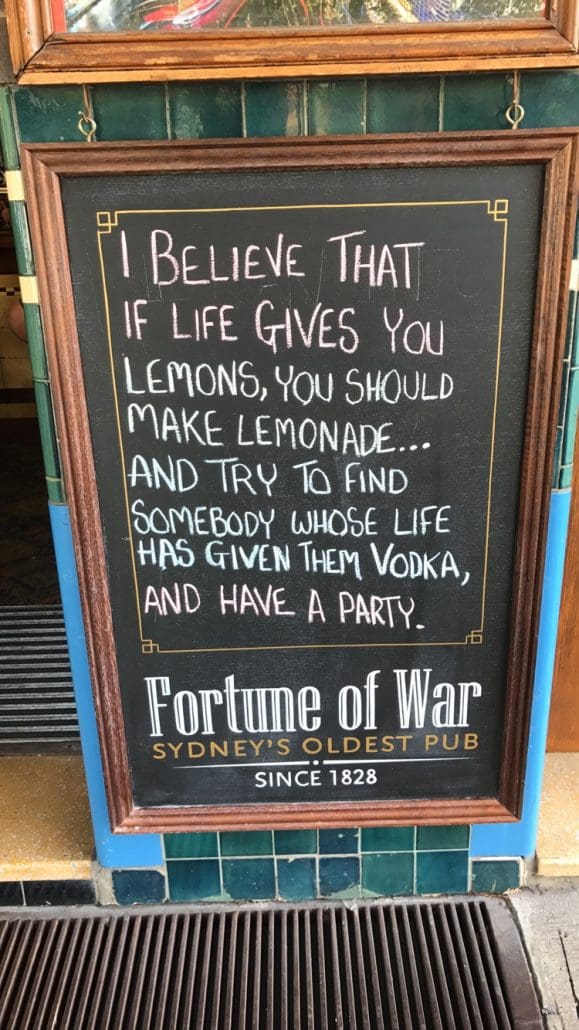 I BELIEVE THAT
IF LIFE GIVES YOU
LEMONS, YOU SHOULD
MAKE LEMONADE...
AND TRY TO FIND
SOMEBODY WHOSE LIFE
HAS GIVEN THEM VODKA,
AND HAVE A PARTY.
Fortune of War
SYDNEY'S OLDEST PUB
SINCE 1828